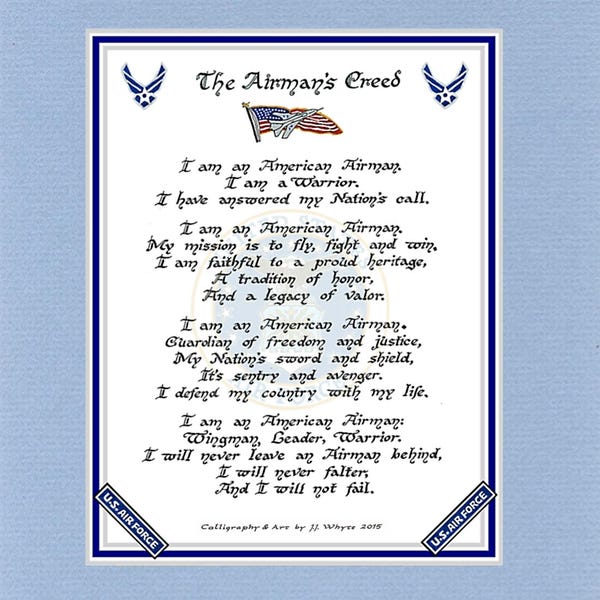 The Airman's Creed
I am an American Airman.
I am a Warrior.
I have answered my Nation's call.
I am an American Airman.
My mission is to fly, fight and win.
I am faithful to a proud heritage,
A tradition of honor,
And a legacy of valor.
I am an American Airman.
Guardian of freedom and justice,
My Nation's sword and shield,
It's sentry and avenger.
I defend my country with my life.
I am an American Airman:
Wingman, Leader, Warrior.
I will never leave an Airman behind,
I will never falter,
And I will not fail.
U.S. AIR FORCE
U.S. AIR FORCE
Calligraphy & Art by J.J. Whyte 2015